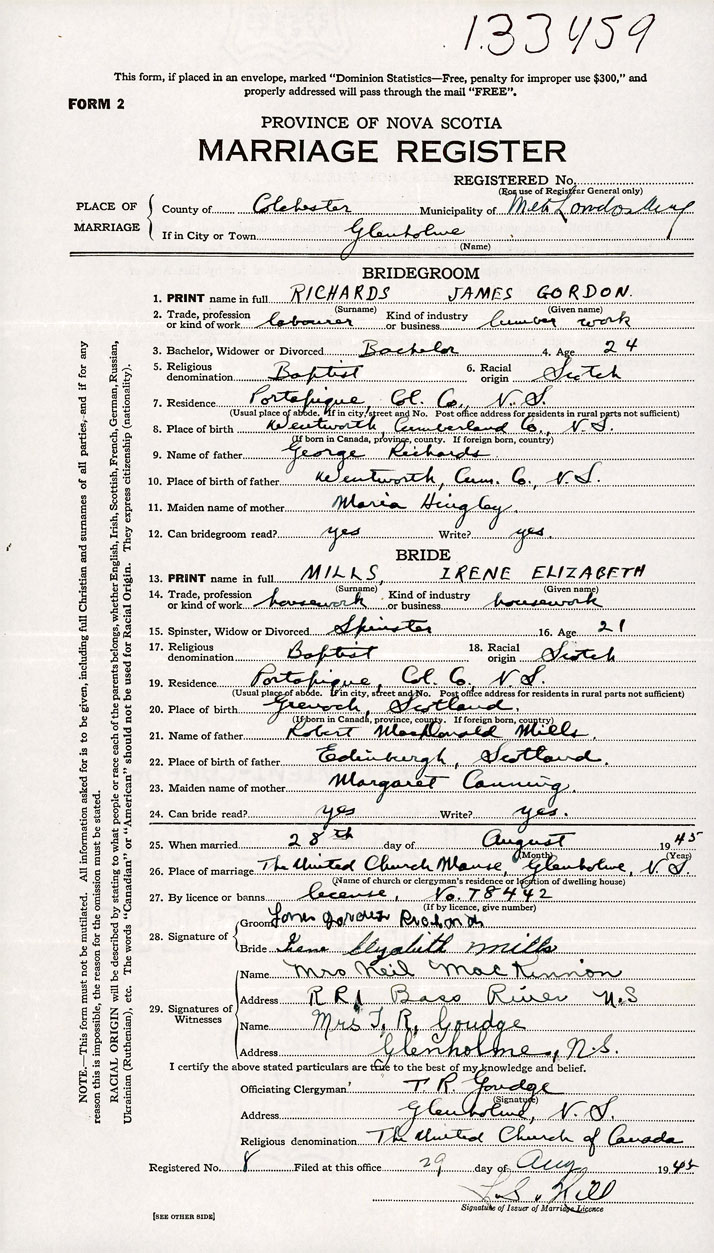 133459
This form, if placed in an envelope, marked "Dominion Statistics—Free, penalty for improper use $300," and
properly addressed will pass through the mail "FREE".
FORM 2
PROVINCE OF NOVA SCOTIA
MARRIAGE REGISTER
REGISTERED No.
(For use of Registrar General only)
PLACE OF MARRIAGE
County of Colchester Municipality of
If in City or Town Glenholme
(Name)
BRIDEGROOM
1. PRINT name in full RICHARDS JAMES GORDON.
(Surname) (Given name)
2. Trade, profession or kind of work labourer Kind of industry or business lumber work
3. Bachelor, Widower or Divorced Bachelor 4. Age 24
5. Religious denomination Baptist 6. Racial origin Scotch
7. Residence Portapique, Col. Co., N.S.
(Usual place of abode. If in city, street and No. Post office address for residents in rural parts not sufficient)
8. Place of birth Wentworth, Cumberland Co., N.S.
(If born in Canada, province, county. If foreign born, country)
9. Name of father George Richards
10. Place of birth of father Wentworth, Cum. Co., N.S.
11. Maiden name of mother Maria Hingley
12. Can bridegroom read? yes Write? yes.
BRIDE
13. PRINT name in full MILLS, IRENE ELIZABETH
(Surname) (Given name)
14. Trade, profession or kind of work housework Kind of industry or business housework
15. Spinster, Widow or Divorced Spinster 16. Age 21
17. Religious denomination Baptist 18. Racial origin Scotch
19. Residence Portapique, Col. Co., N.S.
(Usual place of abode. If in city, street and No. Post office address for residents in rural parts not sufficient)
20. Place of birth Grenoch, Scotland.
(If born in Canada, province, county. If foreign born, country)
21. Name of father Robert MacDonald Mills.
22. Place of birth of father Edinburgh, Scotland.
23. Maiden name of mother Margaret Canning.
24. Can bride read? yes Write? yes.
25. When married 28th day of August 1945
(Month) (Year)
26. Place of marriage The United Church Manse, Glenholme, N.S.
(Name of church or clergyman's residence or location of dwelling house)
27. By licence or banns license, No. T8442
(If by licence, give number)
28. Signature of Groom James Gordon Richards
Bride Irene Elizabeth Mills
29. Signatures of Witnesses
Name Mrs Neil MacKinnon
Address R R 1 Bass River N.S
Name Mrs T. R. Goudge
Address Glenholme, N.S.
I certify the above stated particulars are true to the best of my knowledge and belief.
Officiating Clergyman T. R. Goudge
(Signature)
Address Glenholme, N.S.
Religious denomination The United Church of Canada
Registered No. 8 Filed at this office 29 day of Aug 1945
Hill
Signature of Issuer of Marriage Licence
[SEE OTHER SIDE]
NOTE.—This form must not be mutilated. All information asked for is to be given, including full Christian and surnames of all parties, and if for any
reason this is impossible, the reason for the omission must be stated.
RACIAL ORIGIN will be described by stating to what people or race each of the parents belongs, whether English, Irish, Scottish, French, German, Russian,
Ukrainian (Ruthenian), etc. The words "Canadian" or "American" should not be used for Racial Origin. They express citizenship (nationality).